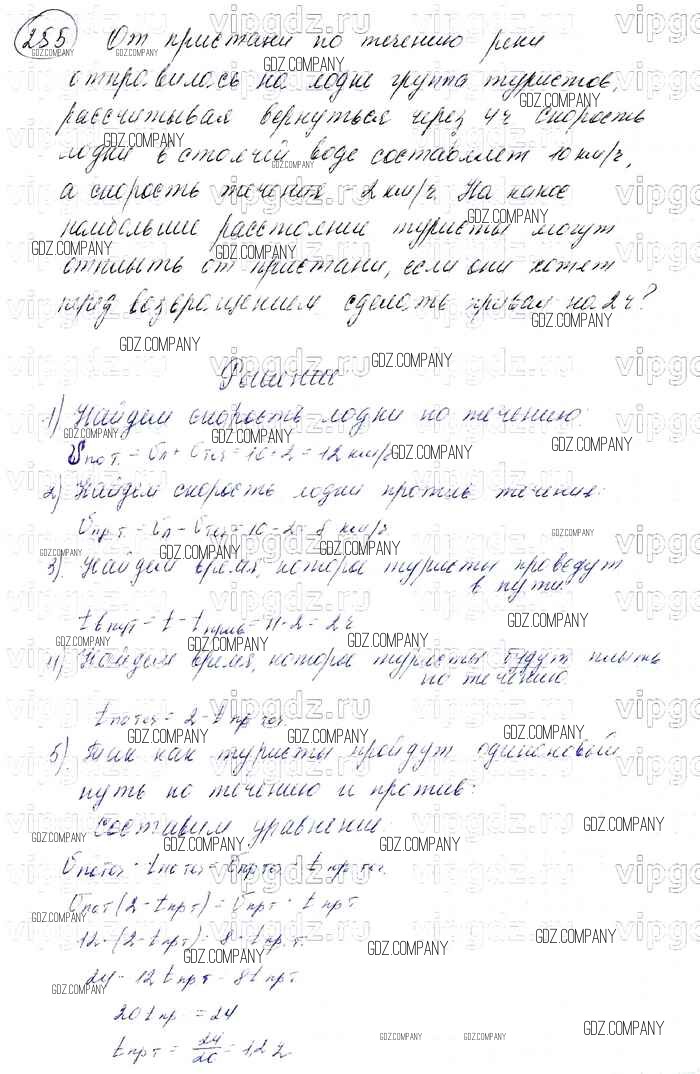 255
От пристани по течению реки
отправилась на лодке группа туристов,
рассчитывая вернуться через 4ч. Скорость
лодки в стоячей воде составляет 10 км/ч,
а скорость течения - 2 км/ч. На какое
наибольшее расстояние туристы могут
отплыть от пристани, если они хотят
перед возвращением сделать привал на 2 ч?
Решение
1) Найдем скорость лодки по течению:
υпо т. = υл + υтеч = 10 + 2 = 12 км/ч
2) Найдем скорость лодки против течения:
υпр т. = υл - υтеч = 10 - 2 = 8 км/ч
3) Найдем время, которое туристы проведут
в пути:
tв пут = t - tприв = 4 - 2 = 2 ч
4) Найдем время, которое туристы будут плыть
по течению:
tпо теч = 2 - tпр теч.
5) Так как туристы пройдут одинаковый
путь по течению и против:
составим уравнение:
υпо теч · tпо теч = υпр теч · tпр теч.
υпо т (2 - tпр т) = υпр т · tпр т
12 · (2 - tпр т) = 8 · tпр т.
24 - 12 tпр т = 8 tпр т.
20 tпр = 24
tпр т = 24/20 = 1,2 ч
GDZ.COMPANY
vipgdz.ru